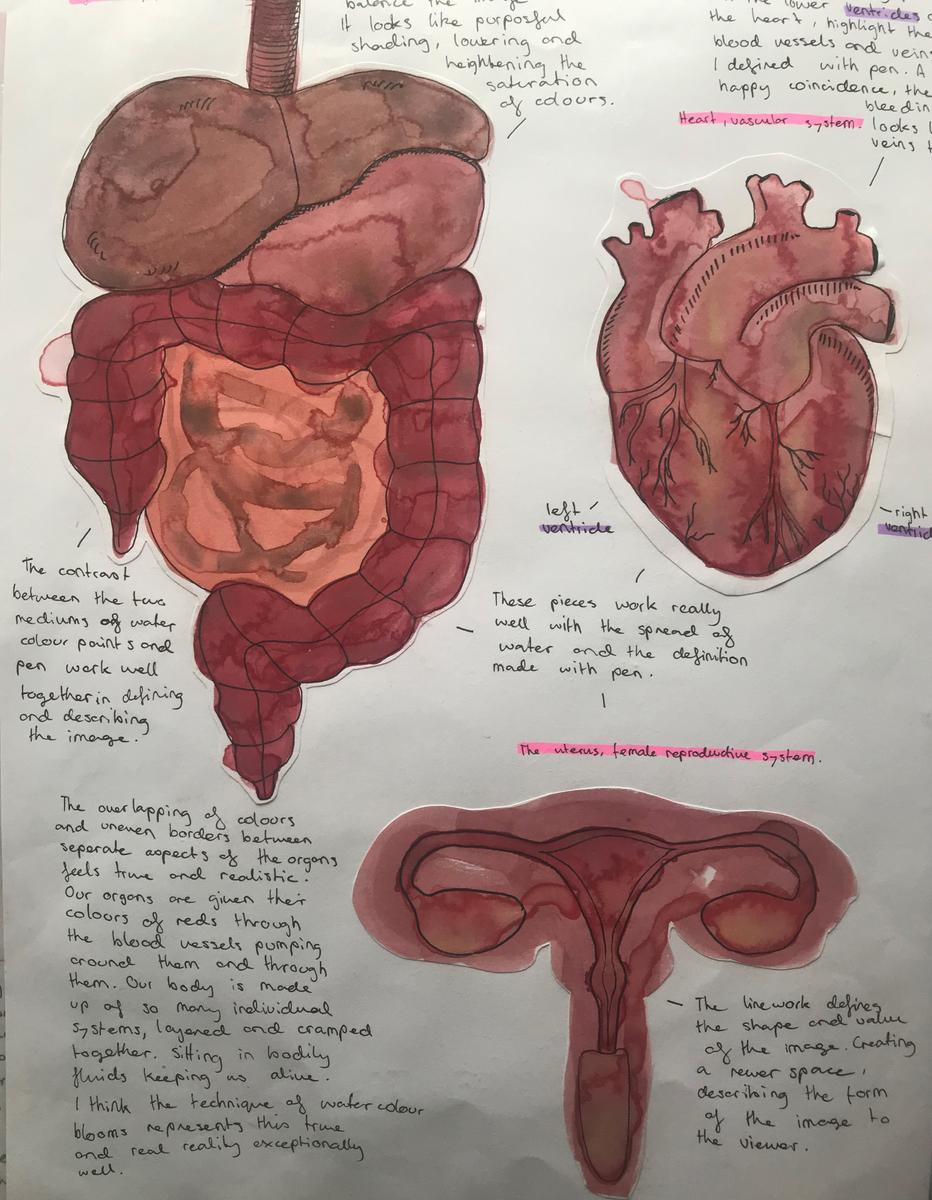 balance the image
It looks like purposful
shading, lowering and
heightening the
saturation
of colours.
the lower ventricles
the heart, highlight the
blood vessels and veins
I defined with pen. A
happy coincidence, the
bleedin
looks l
veins t
Heart, vascular system.
left
ventricle
right
ventric
The contrast
between the two
mediums of water
colour paints and
pen work well
together in defining
and describing
the image.
These pieces work really
well with the spread of
water and the definition
made with pen.
The uterus, female reproductive system.
The overlapping of colours
and uneven borders between
seperate aspects of the organs
feels true and realistic.
Our organs are given their
colours of reds through
the blood vessels pumping
around them and through
them. Our body is made
up of so many individual
systems, layered and cramped
together. Sitting in bodily
fluids keeping us alive.
I think the technique of watercolour
blooms represents this true
and real reality exceptionally
well.
The linework defines
the shape and value
of the image. Creating
a newer space,
describing the form
of the image to
the viewer.